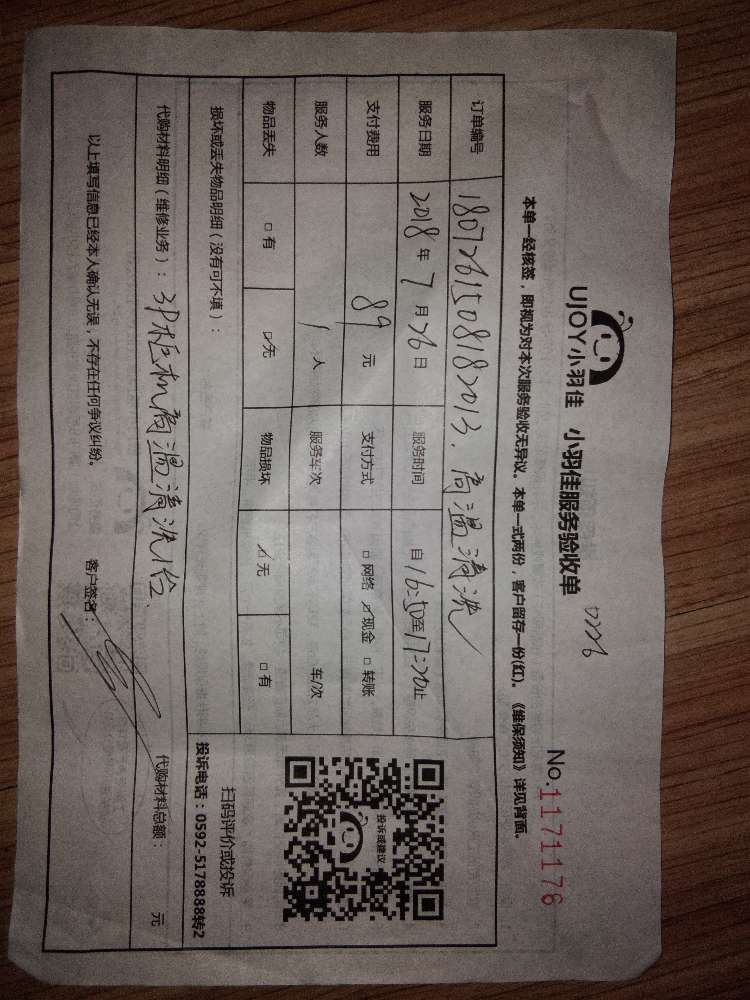 UJOY小羽佳 小羽佳服务验收单
No.1171176
本单一经核签，即视为对本次服务验收无异议。本单一式两份，客户留存一份(红)。《维保须知》详见背面。
订单编号 1807261508182013、高温清洗
服务日期 2018年7月26日 服务时间 自16:50至17:20止
支付费用 89元 支付方式 □网络 ☑现金 □转账
服务人数 1人 服务车次 车/次
物品丢失 □有 ☑无 物品损坏 ☑无 □有
损坏或丢失物品明细（没有可不填）：
投诉或建议
扫码评价或投诉
投诉电话：0592-5178888转2
代购材料明细（维修业务）：3P柜机高温清洗1台、
代购材料总额： 元
以上填写信息已经本人确认无误，不存在任何争议纠纷。 客户签名：